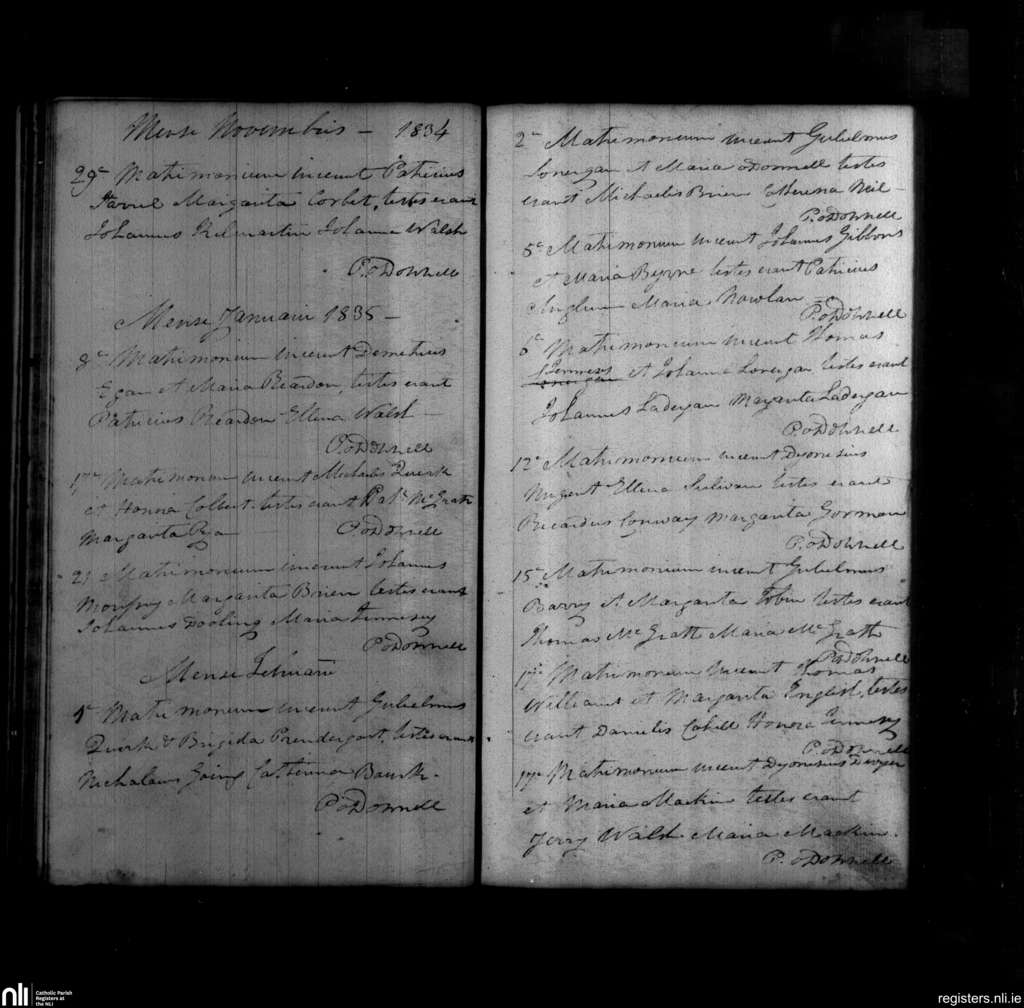 Mense Novembris - 1834
29a Matrimonium inierunt Patricius
Margarita Corbet, testes erant
Johannes Kilmartin Johanna Walsh
P. oDonnell
Mense Januarii 1835 -
8a Matrimonium inierunt Demetrius
Egan et Maria Reardon, testes erant
Patricius Reardon Ellena Walsh -
P. oDonnell
17a Matrimonium inierunt Michaelis Quirk
et Honora Colbert testes erant Patk McGrath
Margarita Rya
P. oDonnell
21 Matrimonium inierunt Johannes
Margarita Brien testes erant
Johannes Dooling Maria Fennesey
P. oDonnell
Mense Februarii
1a Matrimonium inierunt Gulielmus
Quirk & Brigida Prendergast, testes erant
Nicholaus Going Catherina Bourk.
P. oDonnell
2a Matrimonium inierunt Gulielmus
Lonergan et Maria oDonnell testes
erant Michaelis Brien Theresa Neil -
P. oDonnell
5a Matrimonium inierunt Johannes Gibbons
et Maria Byrne testes erant Patricius
Anglum Maria Nowlan -
P. oDonnell
6a Matrimonium inierunt Thomas
Fennesy et Johanna Lonergan, testes erant
Johannes Ladegan Margarita Ladegan
P. oDonnell
12a Matrimonium inierunt Dyonesius
Nugent Ellena Sulivan testes erant
Ricardus Conway Margarita Gorman
P. oDonnell
15a Matrimonium inierunt Gulielmus
Barry et Margarita Tobin testes erant
Thomas McGrath Maria McGrath
P. oDonnell
17a Matrimonium inierunt Thomas
Williams et Margarita English, testes
erant Danielis Cahill Honora Fennesy
P. oDonnell
17a Matrimonium inierunt Dyonesius Dwyer
et Maria Mackin testes erant
Jerry Walsh Maria Mackin.
P. oDonnell
nli
Catholic Parish
Registers at
the NLI
registers.nli.ie